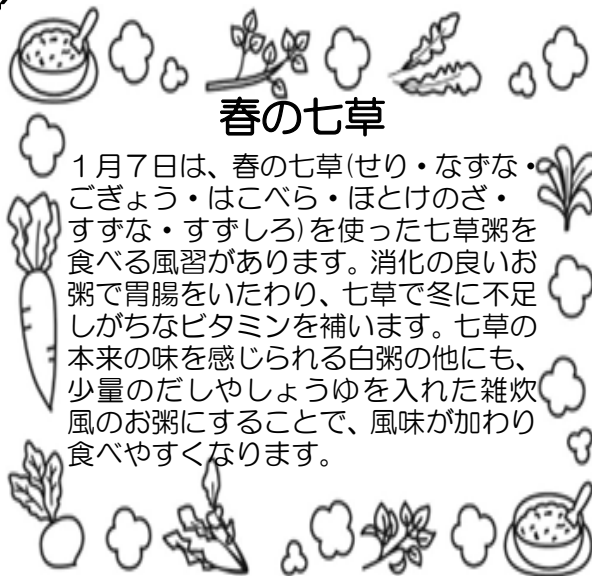 春の七草
1月7日は、春の七草(せり・なずな・
ごぎょう・はこべら・ほとけのざ・
すずな・すずしろ)を使った七草粥を
食べる風習があります。消化の良いお
粥で胃腸をいたわり、七草で冬に不足
しがちなビタミンを補います。七草の
本来の味を感じられる白粥の他にも、
少量のだしやしょうゆを入れた雑炊
風のお粥にすることで、風味が加わり
食べやすくなります。